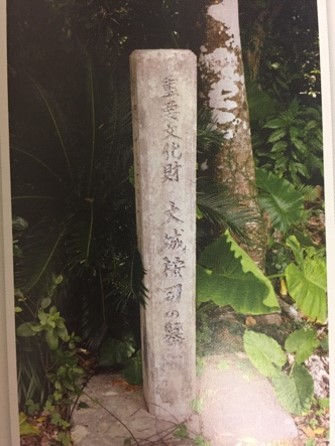 重要文化財 大城按司の墓